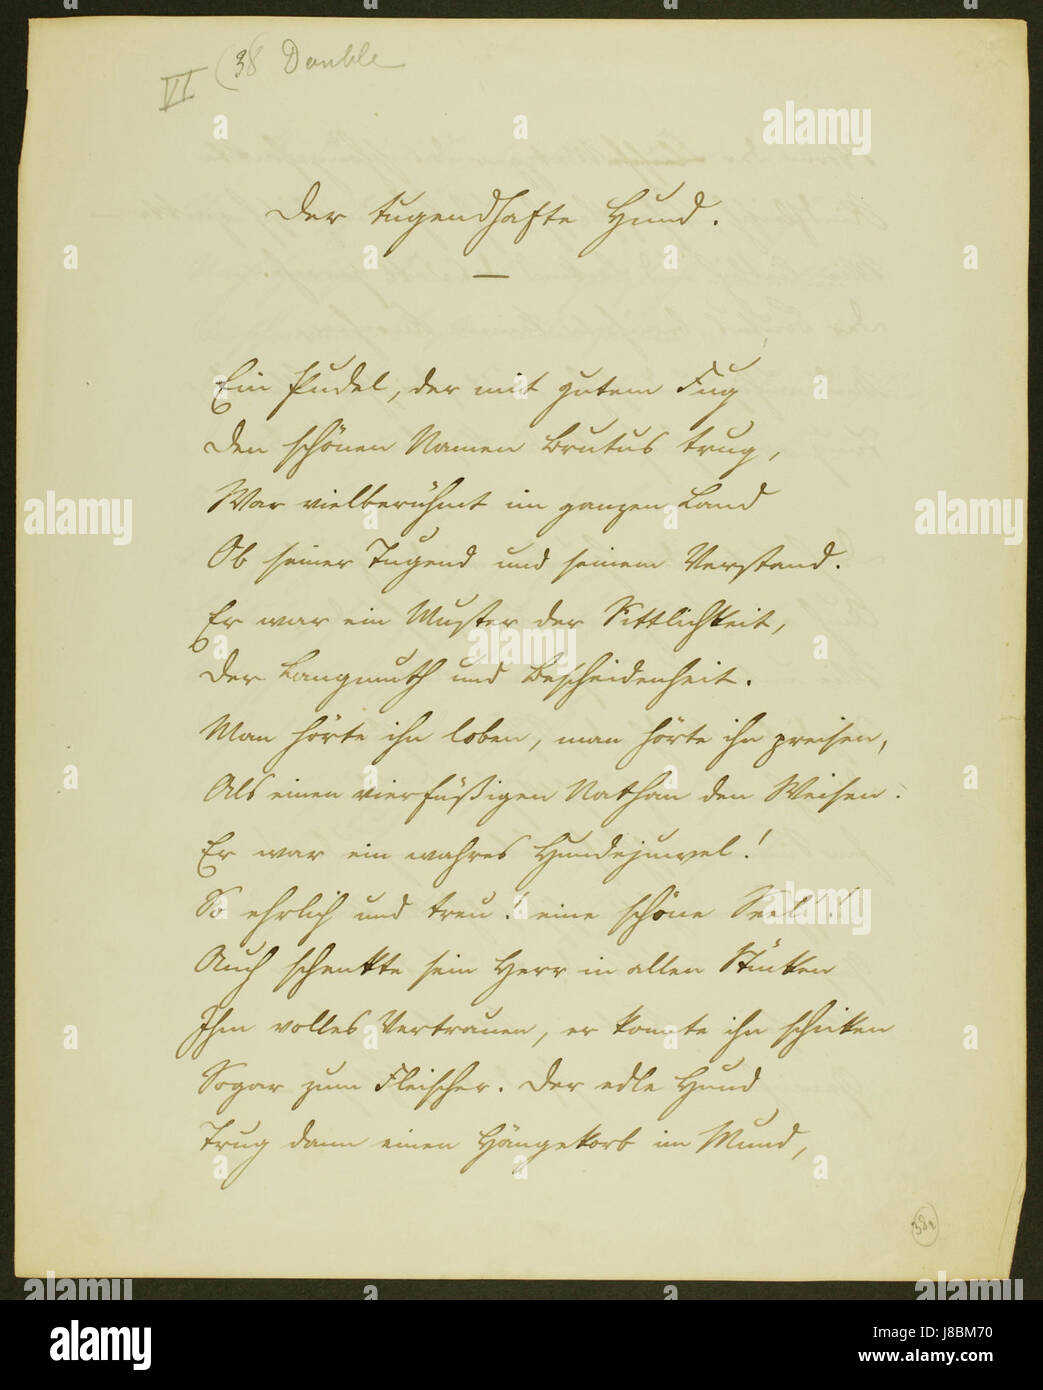 VI (38 Double
Der tugendhafte Hund.
Ein Pudel, der mit gutem Fug
Den schönen Namen Brutus trug,
War vielberühmt im ganzen Land
Ob seiner Tugend und seinem Verstand.
Er war ein Muster der Sittlichkeit,
Der Langmuth und Bescheidenheit.
Man hörte ihn loben, man hörte ihn preisen,
Als einen vierfüßigen Nathan den Weisen.
Er war ein wahres Hundejuwel!
So ehrlich und treu! eine schöne Seel'!
Auch schenkte sein Herr in allen Stücken
Ihm volles Vertrauen, er konnte ihn schicken
Sogar zum Fleischer. Der edle Hund
Trug dann einen Hängekorb im Mund,
alamy
Image ID: J8BM70
www.alamy.com